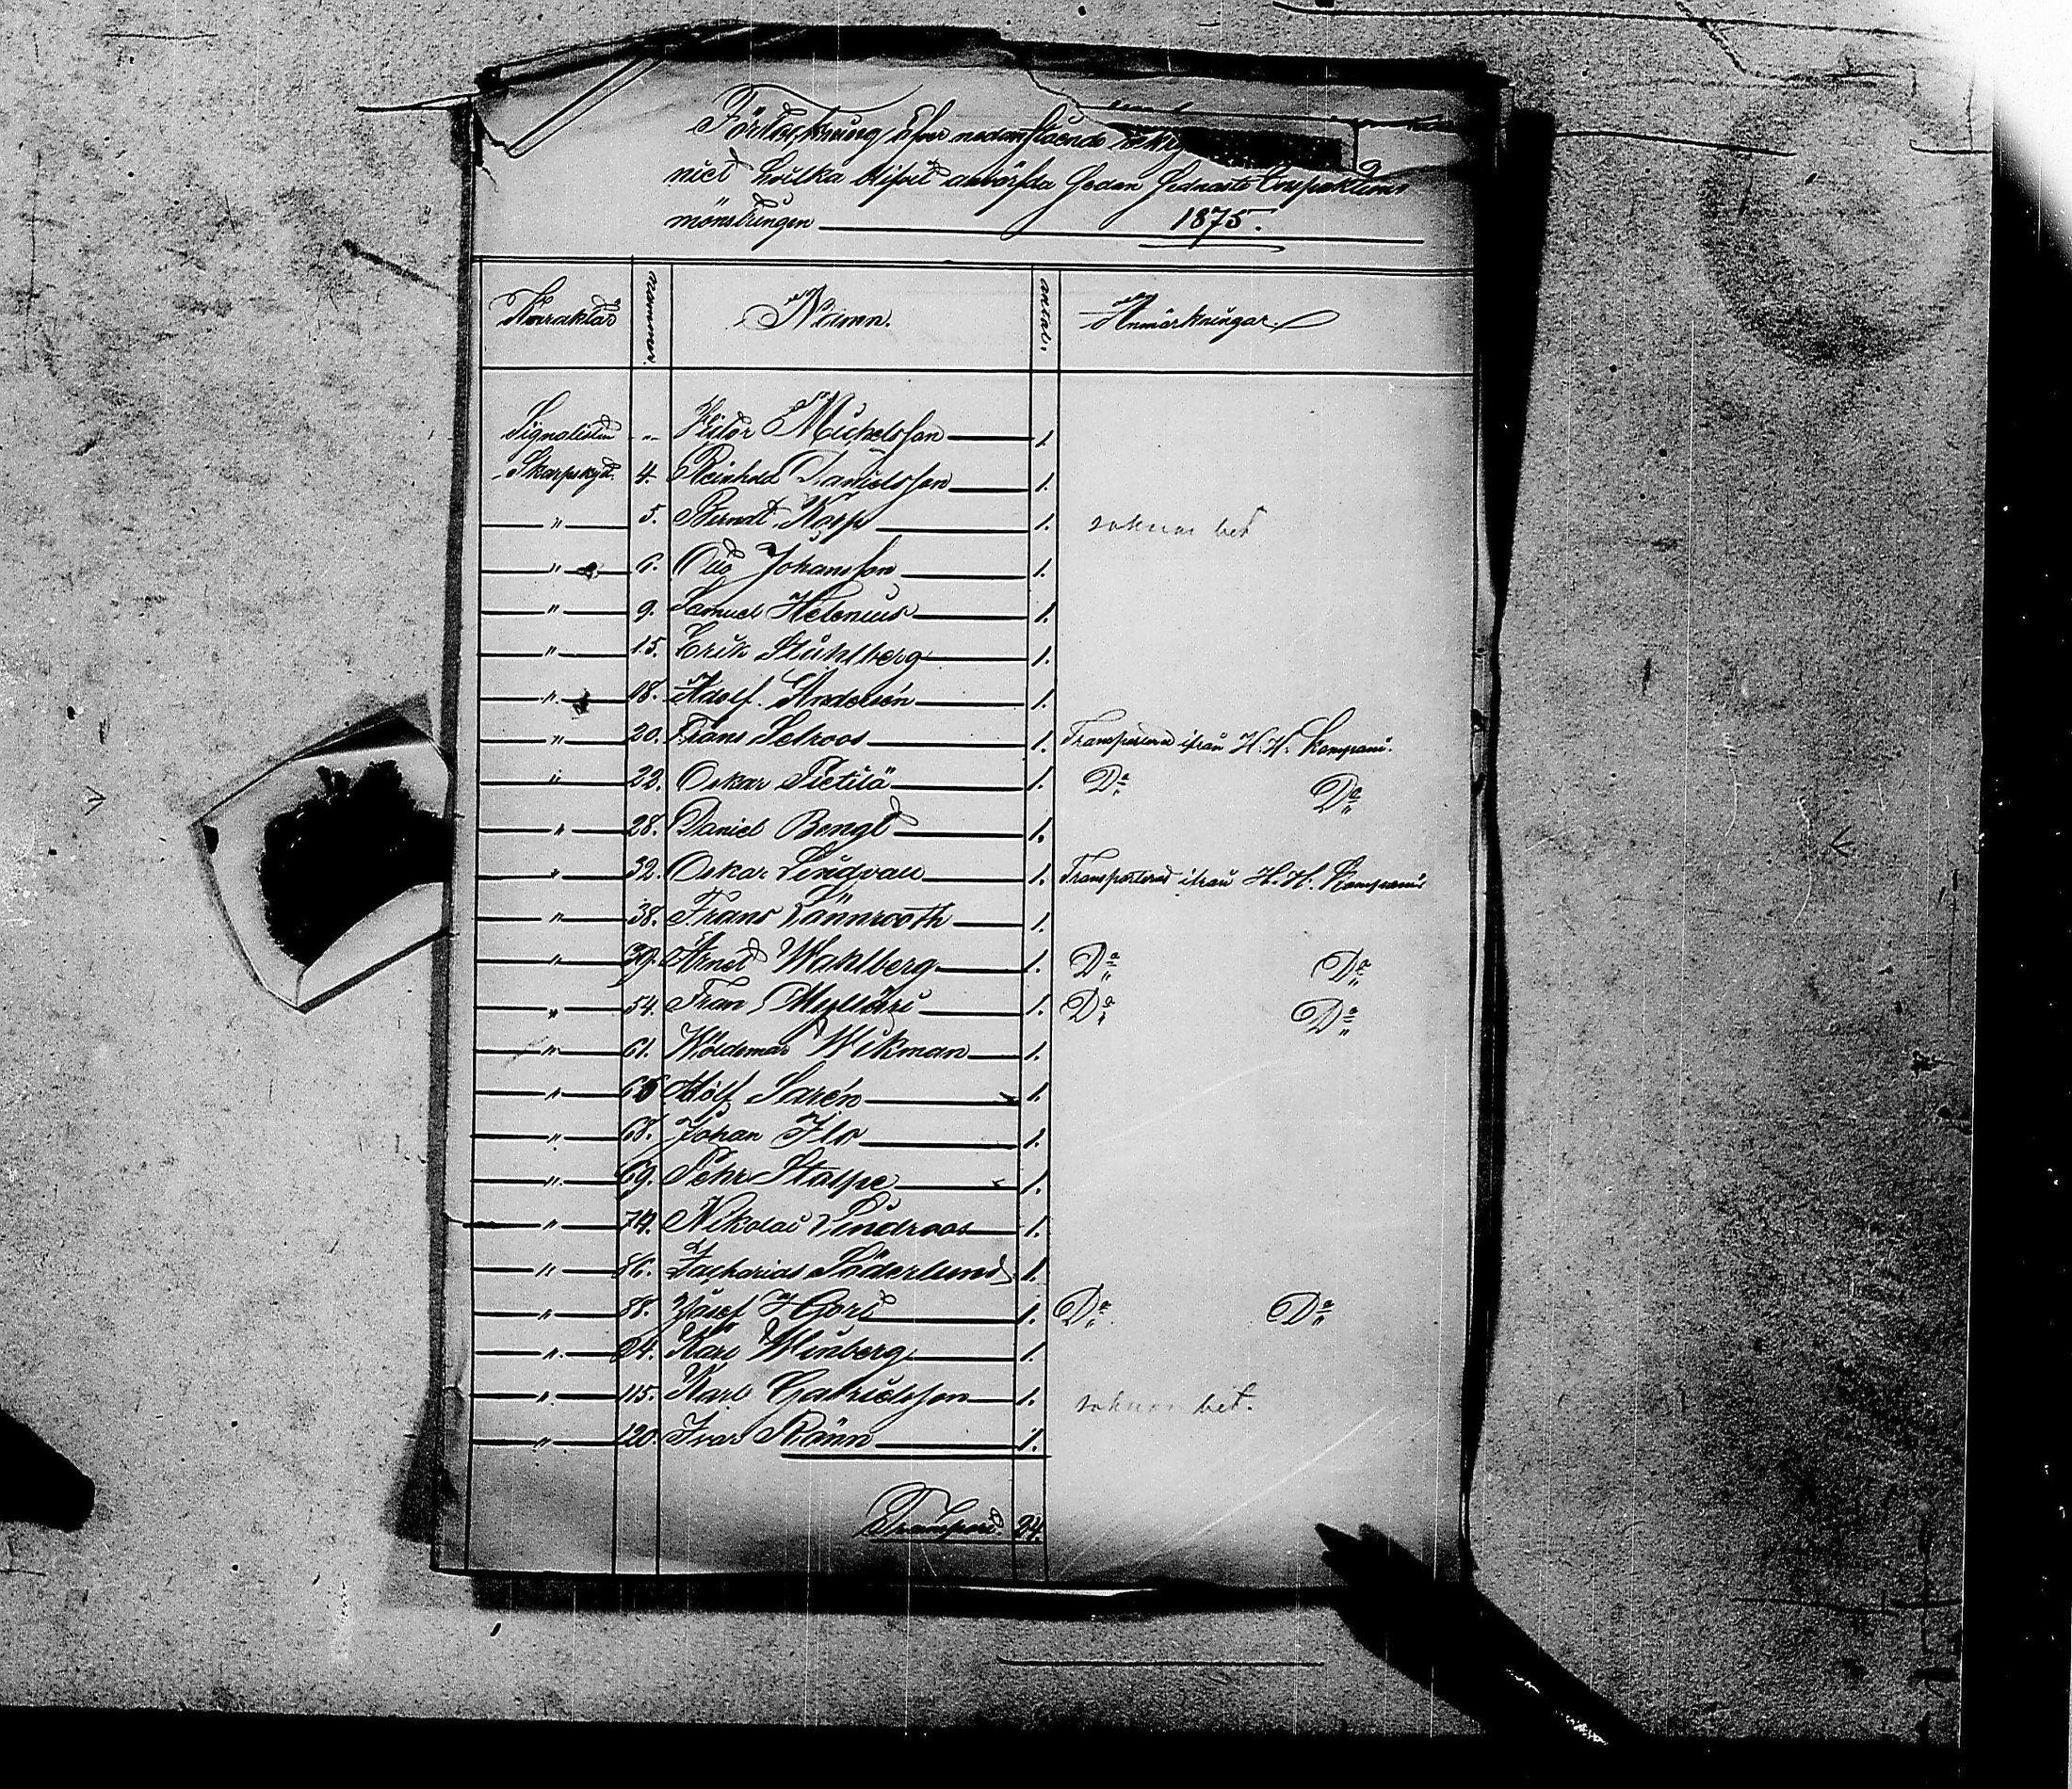 Förteckning öfver nedanstående
hvilka blifvit anvärfda sedan sednaste Inspektions
mönstringen 1875.
Karaktär Nummer. Namn. antal. Anmärkningar.
Signalisten " Viktor Michelsson 1
Skarpskyt. 4. Reinhold Danielsson 1.
" 5. Berndt Korp 1. saknar bet
" 6. Otto Johansson 1.
" 9. Samuel Helenius 1.
" 15. Erik Ståhlberg 1.
" 18. Adolf Andersén 1.
" 20. Frans Selroos 1. Transporterad ifrån H. H. Kompani.
" 22. Oskar Pietilä 1. Do Do
" 28. Daniel Bengt 1.
" 32. Oskar Lindvall 1. Transporterad ifrån H. H. Kompani
" 38. Frans Lönnrooth 1.
" 39. Arnd Wahlberg 1. Do Do
" 54. Frans Myllöri 1. Do Do
" 61. Woldemar Wikman 1.
" 65 Adolf Sarén 1.
" 68. Johan Flo 1.
" 69. Pehr Stalpe 1.
" 74. Nikolai Lindroos 1.
" 86. Zacharias Söderlund 1.
" 88. Josef Hjort 1. Do Do
" 94. Karl Winberg 1.
" 115. Karl Gabrielsson 1. saknar bet.
" 120. Ivar Rönn 1.
Transport. 24.